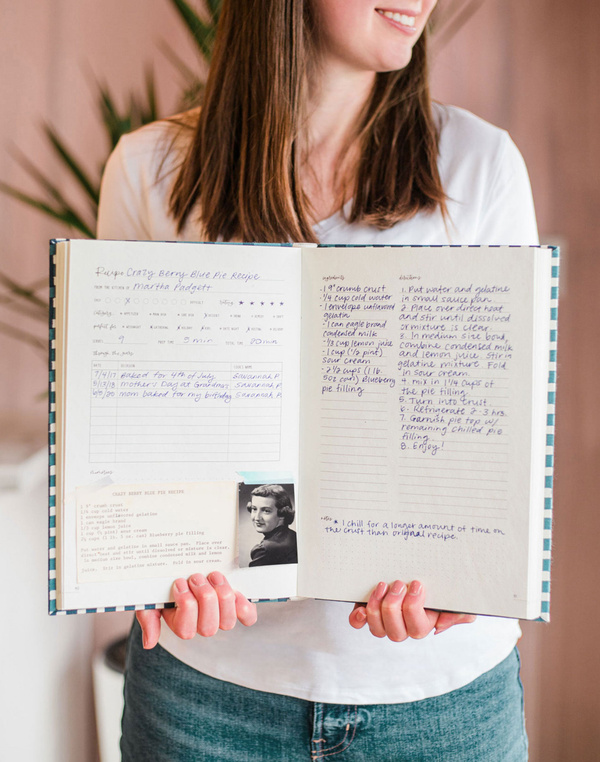 Recipe Crazy Berry Blue Pie Recipe
FROM THE KITCHEN OF Martha Padgett
RATING
SERVES 9 PREP TIME 5 min TOTAL TIME 20 min
Through the years
DATE OCCASION
7/4/17 Baked for 4th of July Savannah P.
Mother's Day at Grandmas Savannah P.
mom baked for my birthday Savannah P.
CRAZY BERRY BLUE PIE RECIPE
1 9" crumb crust
1/4 cup cold water
1 envelope unflavored gelatin
1 can eagle brand
1/3 cup lemon juice
1 cup ½ pint sour cream
2½ cups (1 lb. 5 oz. can) blueberry pie filling
Put water and gelatine in small sauce pan. Place over
direct heat and stir until dissolved or mixture is clear.
In medium size bowl, combine condensed milk and lemon
juice. Stir in gelatine mixture. Fold in sour cream.
Ingredients
· 1 9" crumb crust
· 1/4 cup cold water
· 1 envelope unflavored
gelatin
· 1 can eagle brand
condensed milk
· 1/3 cup lemon juice
· 1 cup (½ pint)
sour cream
· 2 ½ cups (1 lb.
5oz can) blueberry
pie filling
Directions
1. Put water and gelatine
in small sauce pan.
2. Place over direct heat
and stir until dissolved
or mixture is clear.
3. In medium size bowl,
combine condensed milk
and lemon juice. Stir in
gelatine mixture. Fold
in sour cream.
4. mix in 1 1/4 cups of
the pie filling.
5. Turn into crust
6. Refrigerate 2-3 hrs.
7. Garnish pie top w/
remaining chilled pie
filling.
8. Enjoy!
Notes * I chill for a longer amount of time on
the crust than original recipe.